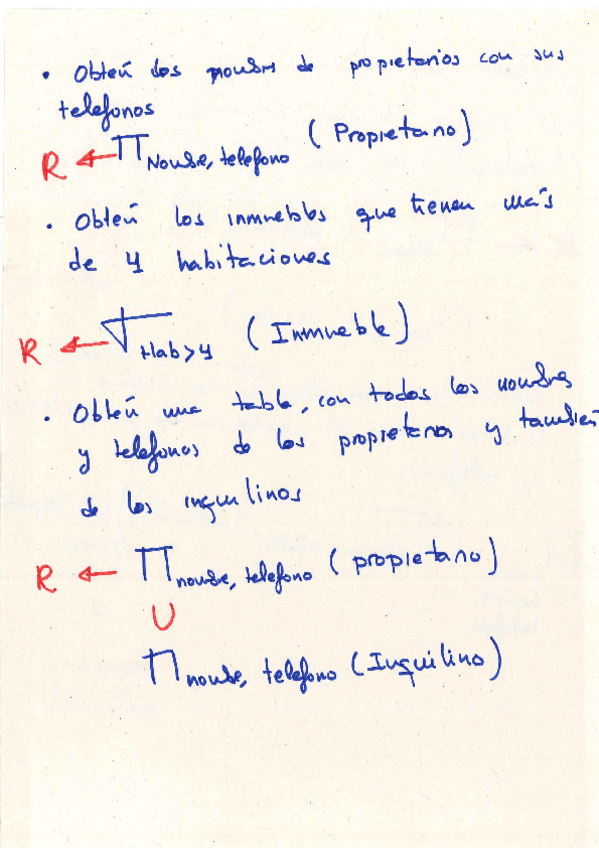 • Obtén los nombre de propietarios con sus
telefonos
R ← Π Nombre, telefono (Propietario)
• Obtén los inmuebles que tienen más
de 4 habitaciones
R ← σ Hab>4 (Inmueble)
• Obtén una tabla, con todos los nombres
y telefonos de los propietarios y también
de los inquilinos
R ← Π nombre, telefono (propietario)
∪
Π nombre, telefono (Inquilino)